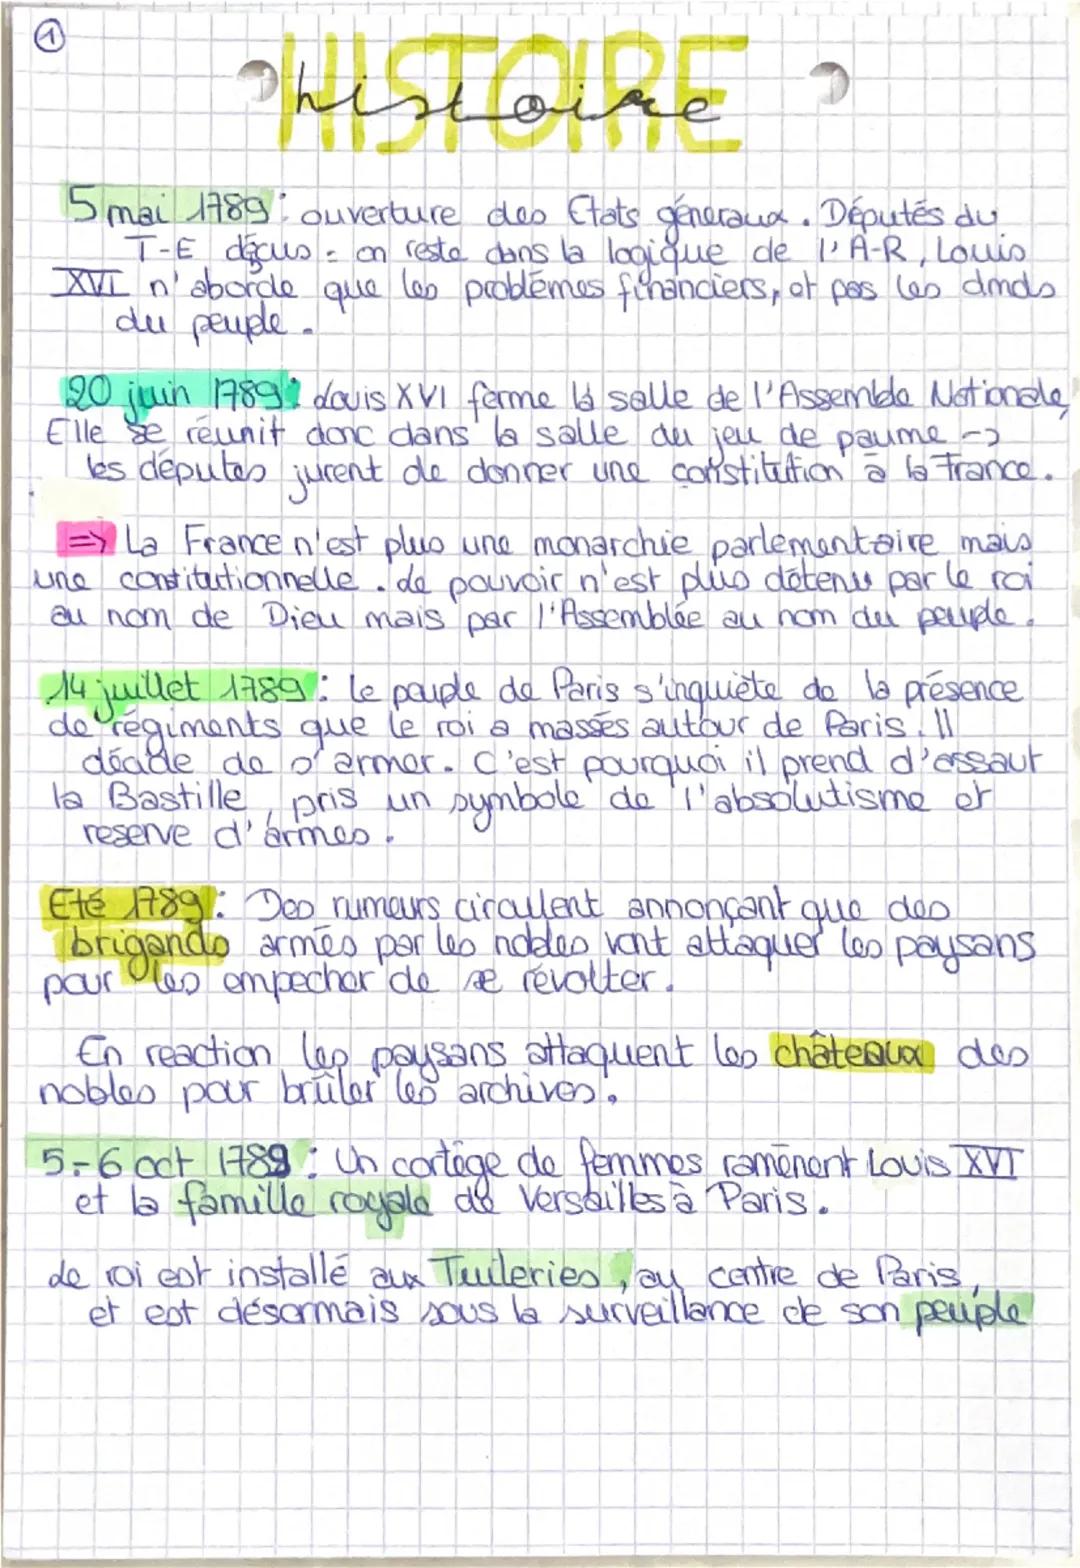 ①
HISTOIRE
histoire
5 mai 1789 : ouverture des Etats généraux. Députés du
T-E déçus = on reste dans la logique de l'A-R, Louis
XVI n'aborde que les problèmes financiers, et pas les dmds
du peuple.
20 juin 1789 : Louis XVI ferme la salle de l'Assemble Nationale,
Elle se réunit donc dans la salle du jeu de paume ->
les députés jurent de donner une constitution à la France.
=> La France n'est plus une monarchie parlementaire mais
une constitutionnelle. Le pouvoir n'est plus détenu par le roi
au nom de Dieu mais par l'Assemblée au nom du peuple.
14 juillet 1789 : le peuple de Paris s'inquiète de la présence
de régiments que le roi a massés autour de Paris. Il
décide de s'armer. C'est pourquoi il prend d'assaut
la Bastille, pris un symbole de l'absolutisme et
reserve d'armes.
Eté 1789 : Des rumeurs circulent annonçant que des
brigands armés par les nobles vont attaquer les paysans
pour les empecher de se révolter.
En reaction les paysans attaquent les châteaux des
nobles pour brûler les archives.
5-6 oct 1789 : Un cortège de femmes ramènent Louis XVI
et la famille royale de Versailles à Paris.
Le roi est installé aux Tuileries, au centre de Paris,
et est désormais sous la surveillance de son peuple